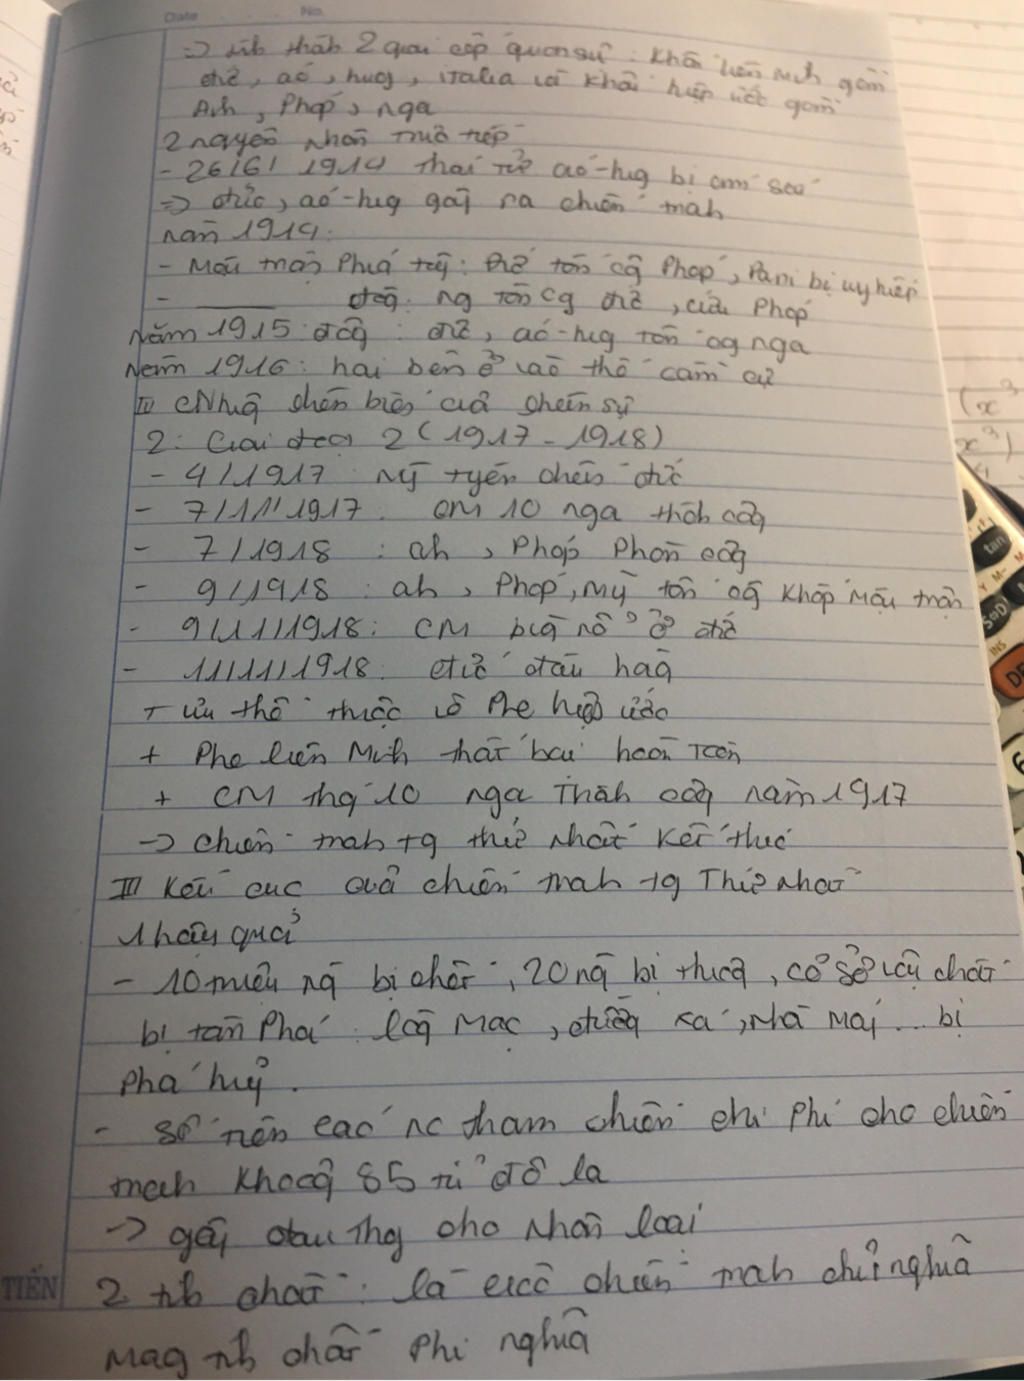 Date No.
=> hình thành 2 giai cấp quân sự : Khối liên minh gồm
đức, aó, hug, italia và Khối hiệp ước gồm
Anh, Pháp, nga
2 nguyên nhân trực tiếp
- 26/6/1914 thái tử aó-hug bị ám sát
=> đức, aó-hug gây ra chiến tranh
năm 1914:
- Mặt trận Phía tây: Đức tấn cg Pháp, Pari bị uy hiếp
- ——— đôg: ng tấn cg đức, cứu Pháp
Năm 1915: đôg: đức, aó-hug tấn cg nga
Năm 1916: hai bên ở vào thế cầm cự
II Nhữg diễn biến của chiến sự
2: Giai đoạn 2 (1917-1918)
- 4/1917: Mỹ tuyên chiến đức
- 7/11/1917: CM 10 nga thành côg
- 7/1918: ah, Pháp Phản côg
- 9/1918: ah, Pháp, Mỹ tấn côg Khắp Mặt trận
- 9/11/1918: CM bùg nổ ở đức
- 11/11/1918: đức đầu hàg
+ ưu thế thuộc về Phe hiệp ước
+ Phe liên Minh thất bại hoàn toàn
+ CM thg 10 nga Thành côg năm 1917
-> chiến tranh tg thứ nhất Kết thúc
III Kết cục của chiến tranh tg Thứ nhất
1 hậu quả
- 10 triệu ng bị chết, 20 ng bị thươg, cơ sở vật chất
bị tàn Phá: làg Mạc, đườg xá, nhà Máy... bị
Phá huỷ.
- số tiền các nc tham chiến chi Phí cho chiến
tranh Khoảg 85 tỉ đô la
-> gây đau thg cho nhân loại
TIẾN
2 tính chất: là cuộc chiến tranh chủ nghĩa
Mag tính chất Phi nghĩa
(x³
x³)
tan
M-
S⇔D
INS
DE
6